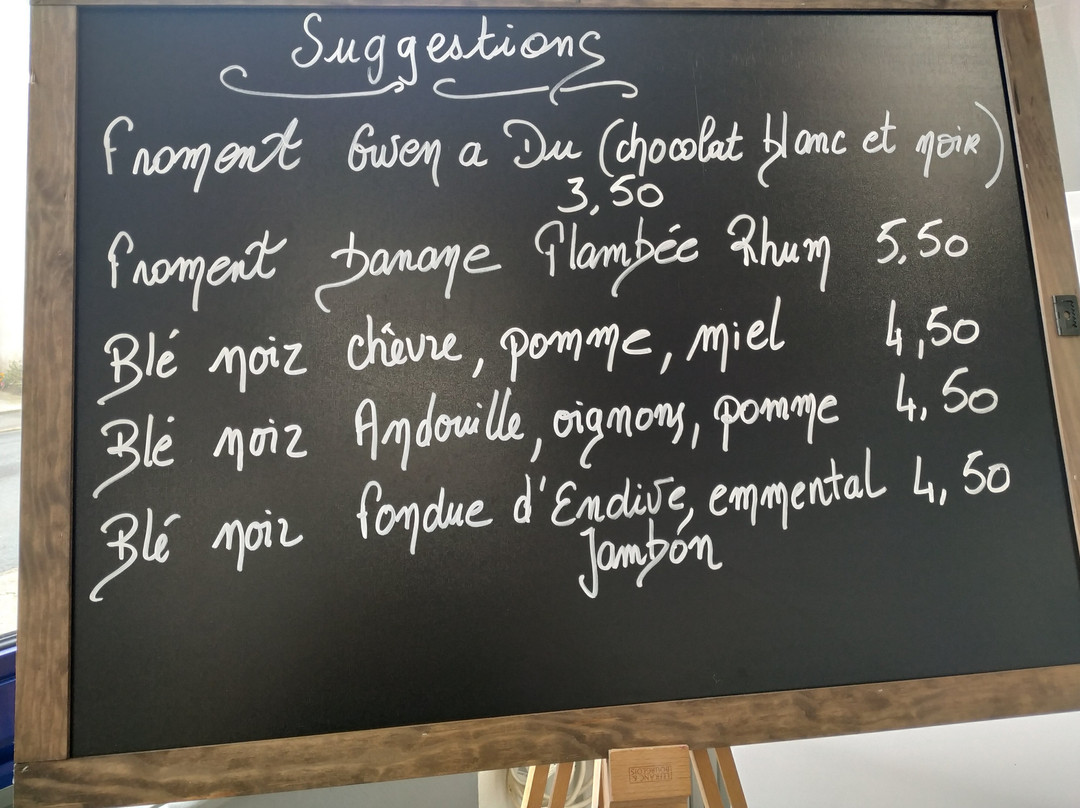 Suggestions
Froment Gwen a Du (chocolat blanc et noir)
3,50
Froment banane Flambée Rhum 5,50
Blé noir chèvre, pomme, miel 4,50
Blé noir Andouille, oignons, pomme 4,50
Blé noir fondue d'Endive, emmental 4,50
Jambon